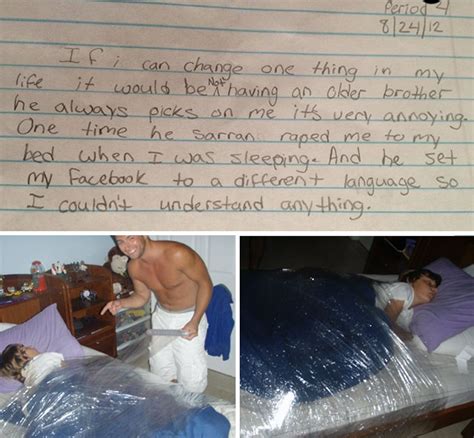 Period 4
8/24/12
If i can change one thing in my
life it would be Not having an older brother
he always picks on me it's very annoying.
One time he sarran raped me to my
bed when I was sleeping. And he set
my Facebook to a different language so
I couldn't understand anything.